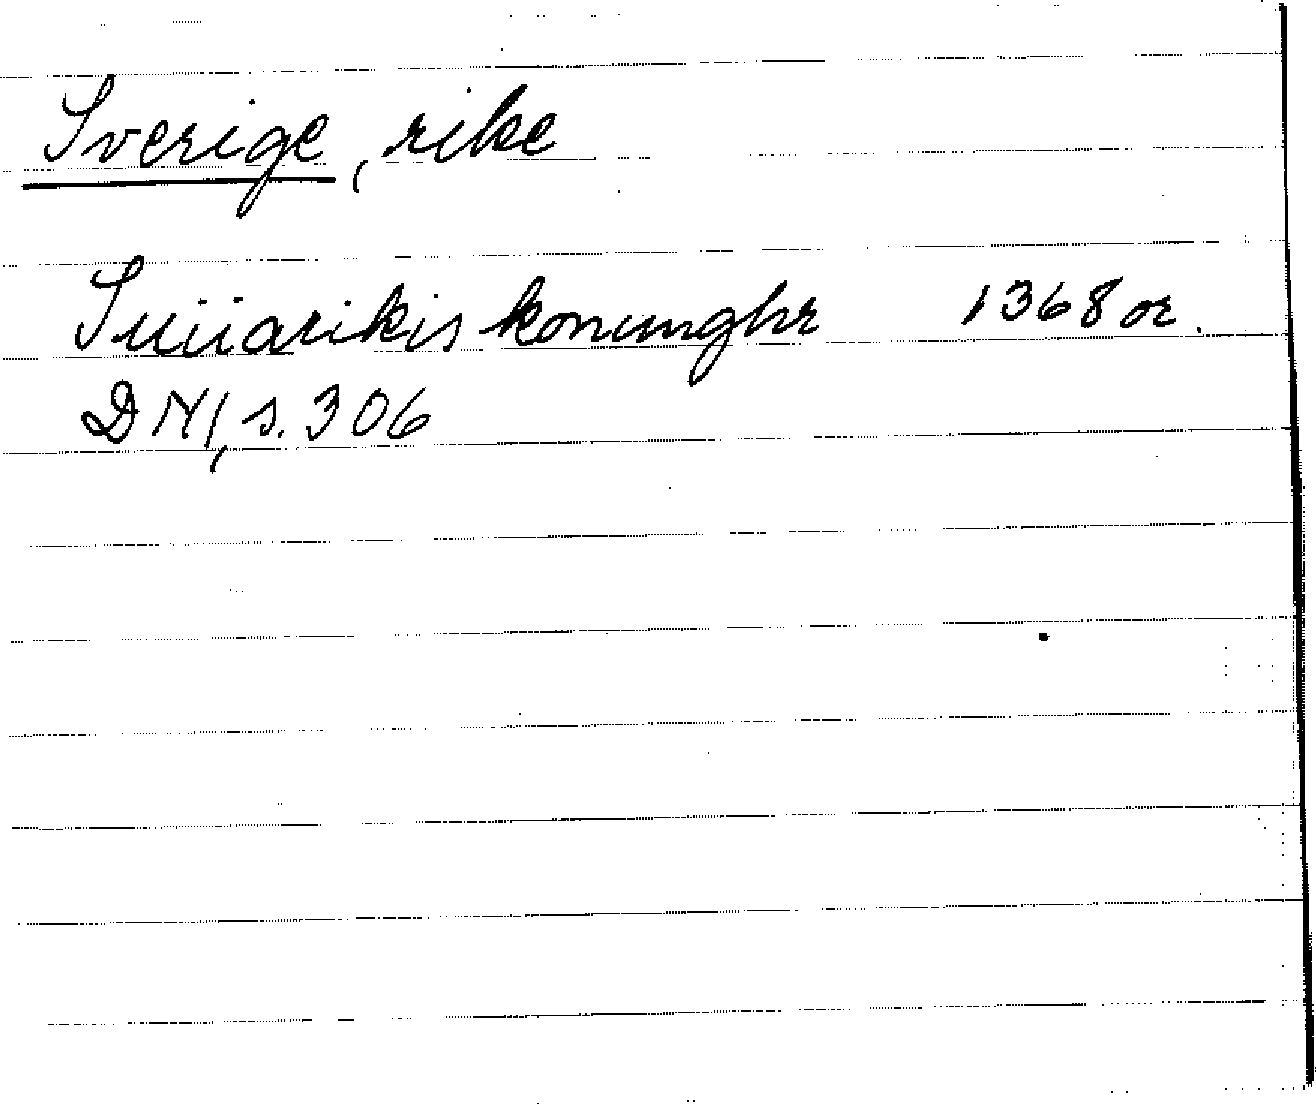 Sverige, rike
Suiiarikis konunghr 1368 or.
DN 1, s. 306